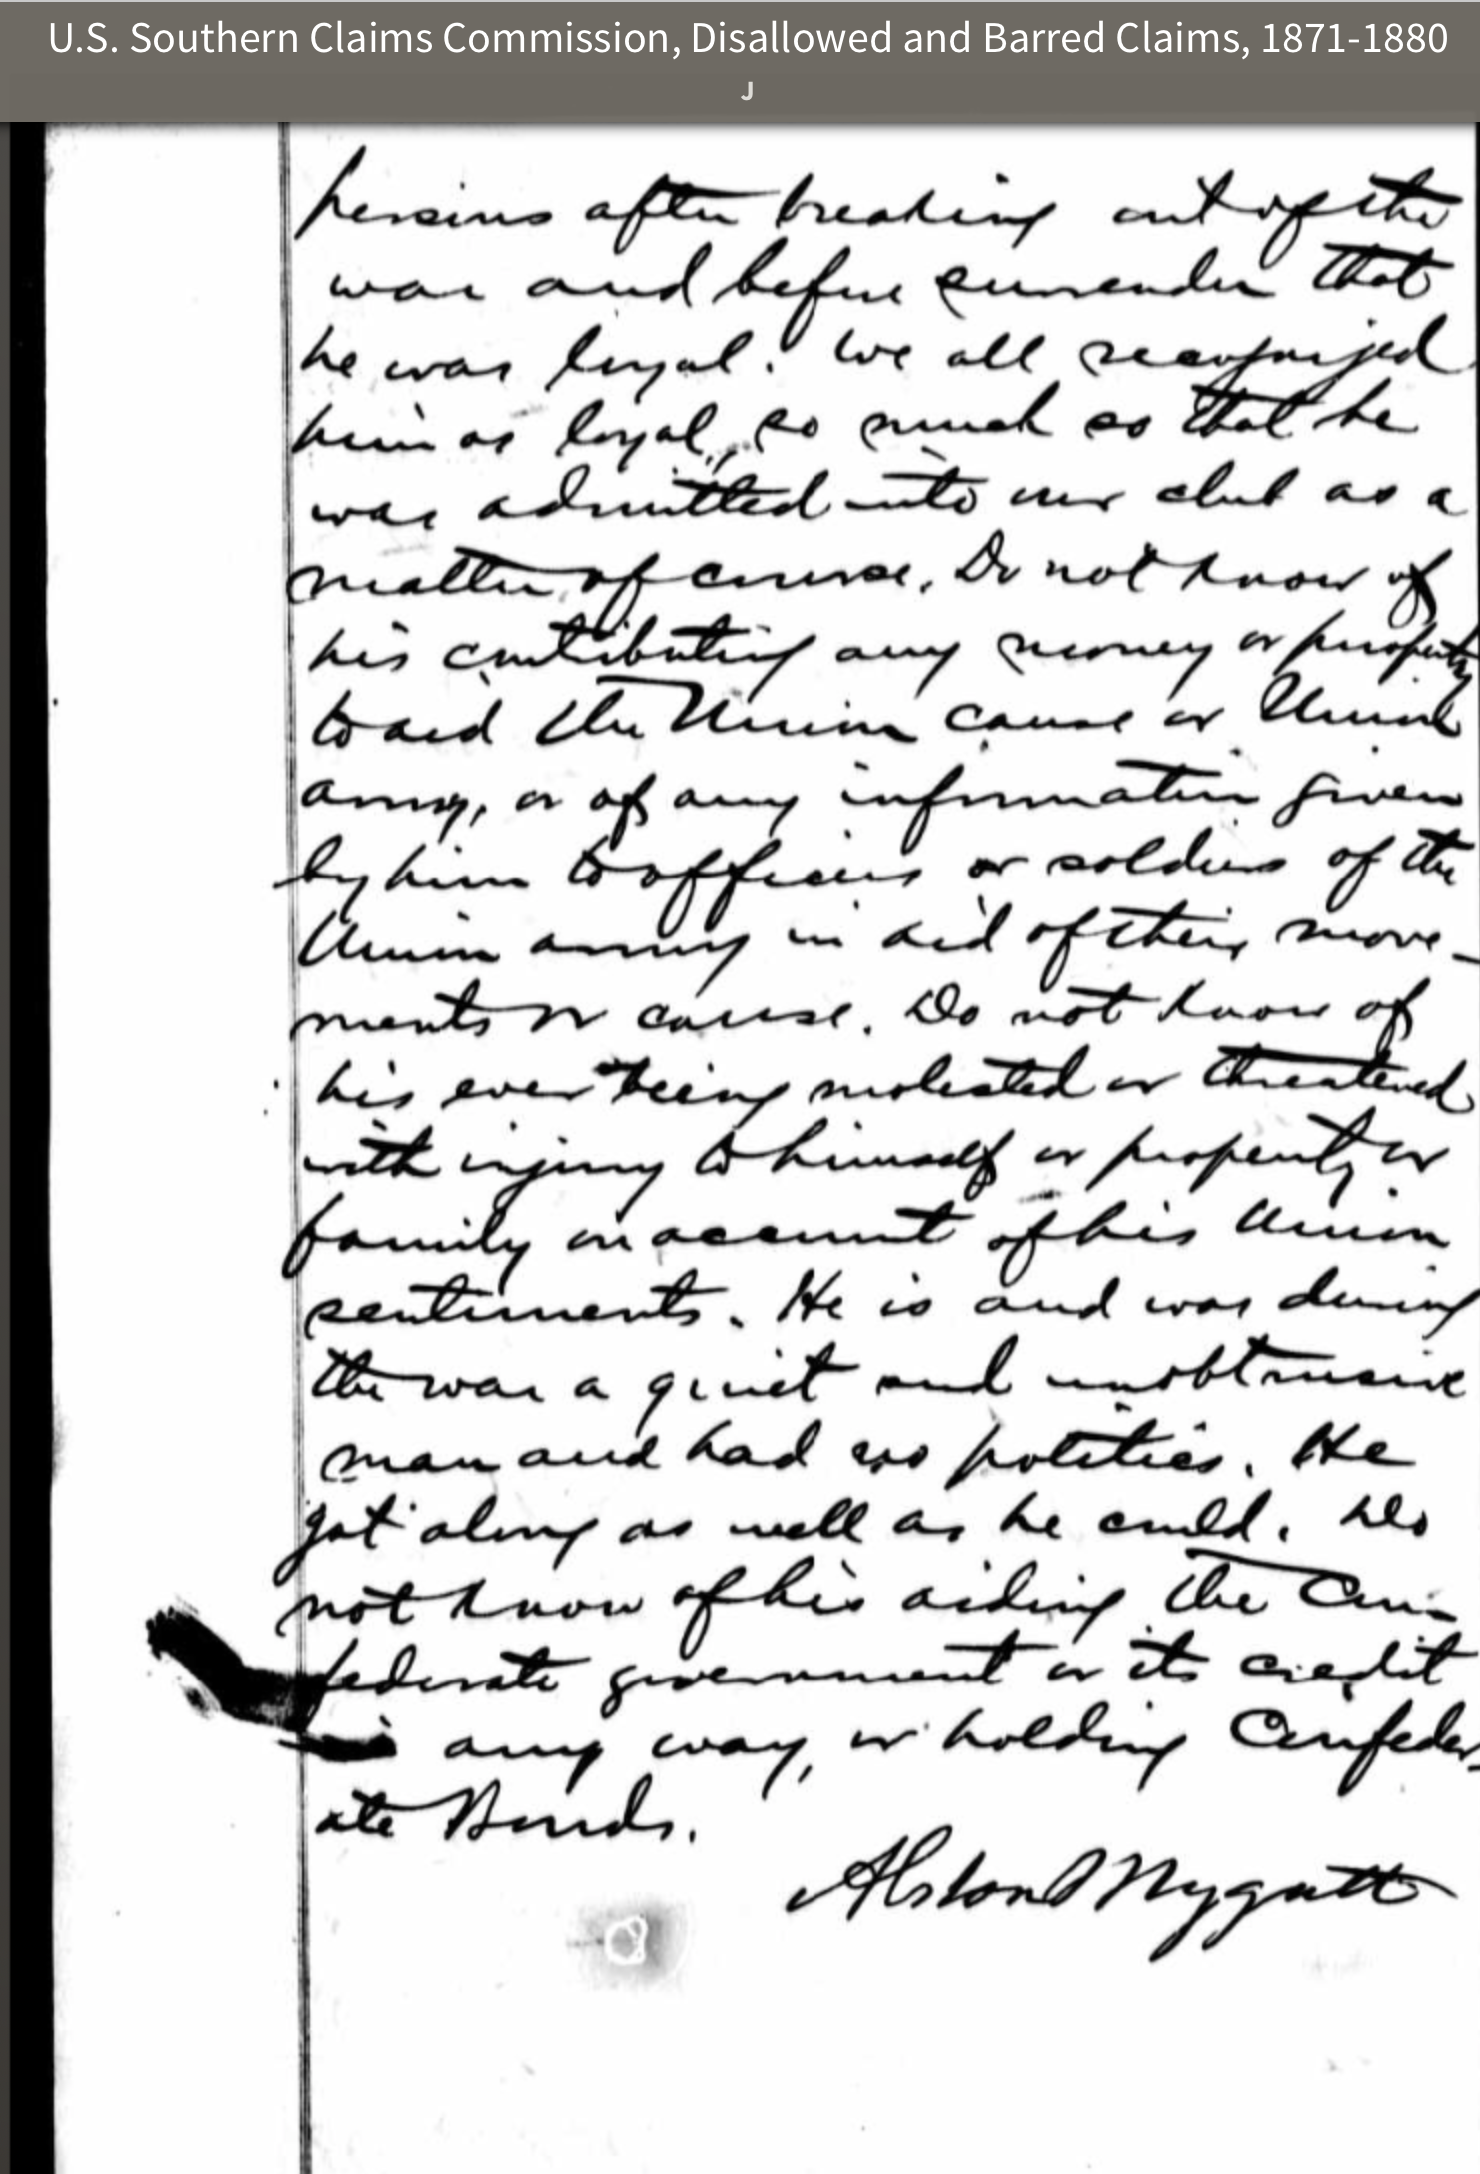 U.S. Southern Claims Commission, Disallowed and Barred Claims, 1871-1880
J
persons after breaking out of the
war and before surrender that
he was loyal. We all recognized
him as loyal, so much so that he
was admitted into our club as a
matter of course. Do not know of
his contributing any money or property
to aid the Union cause or Union
army, or of any information given
by him to officers or soldiers of the
Union army in aid of their move-
ments or cause. Do not know of
his ever being molested or threatened
with injury to himself or property or
family on account of his Union
sentiments. He is and was during
the war a quiet and unobtrusive
man and had no politics. He
got along as well as he could. Do
not know of his aiding the Con-
federate government or its credit
in any way, or holding Confeder-
ate Bonds.
Alston Mygatt